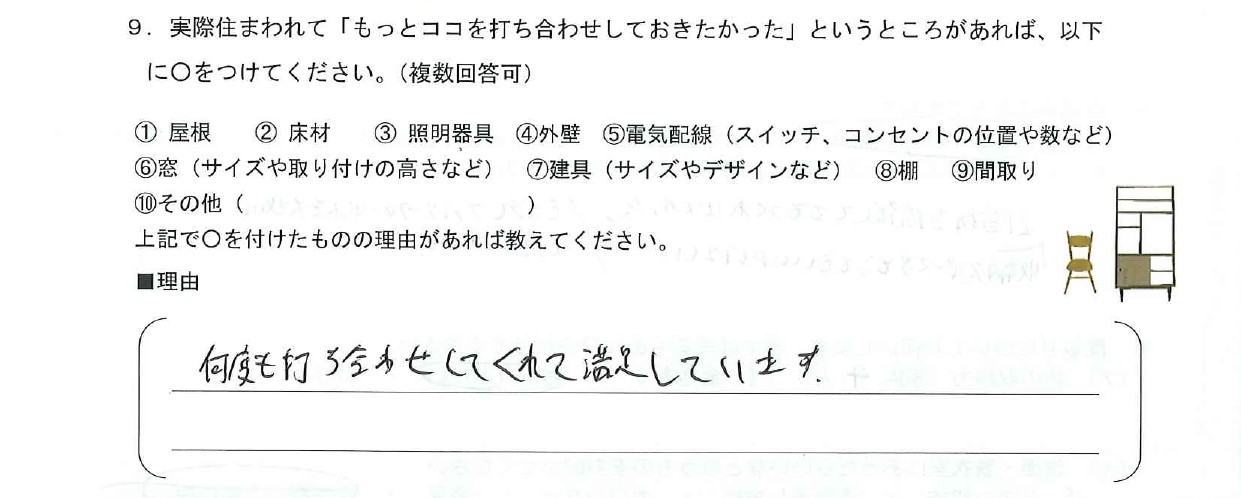 ９．実際住まわれて「もっとココを打ち合わせしておきたかった」というところがあれば、以下
に〇をつけてください。（複数回答可）
① 屋根　② 床材　③ 照明器具　④外壁　⑤電気配線（スイッチ、コンセントの位置や数など）
⑥窓（サイズや取り付けの高さなど）　⑦建具（サイズやデザインなど）　⑧棚　⑨間取り
⑩その他（　　　　　　　　　　　　）
上記で〇を付けたものの理由があれば教えてください。
■理由
何度も打ち合わせしてくれて満足しています.